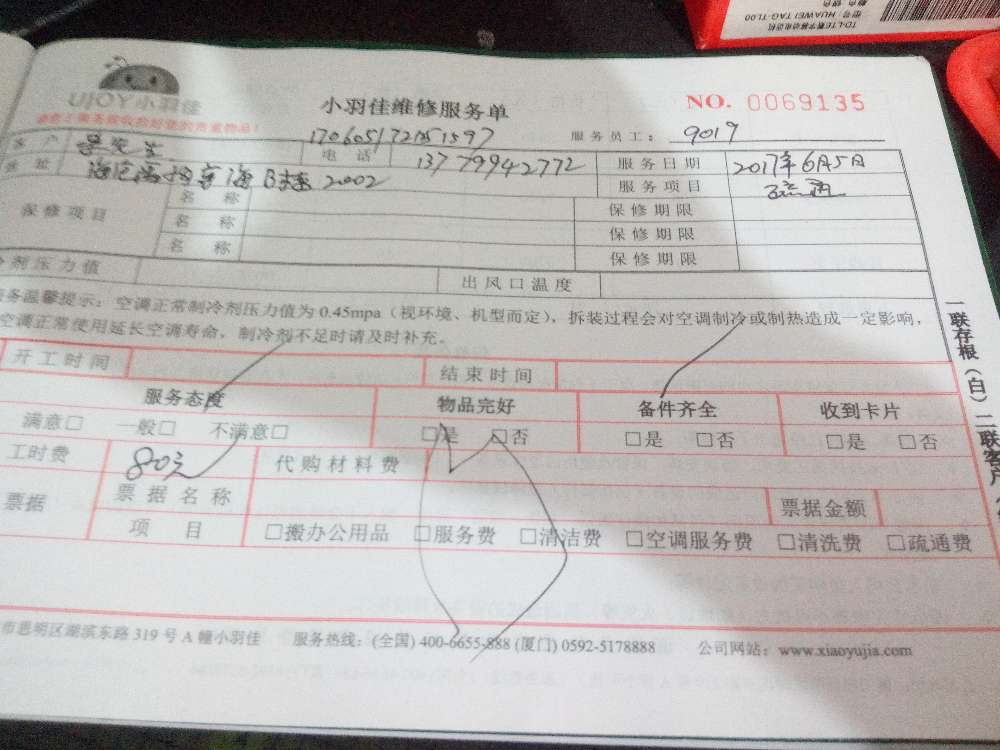 TD-LTE数字移动电话机
型号: HUAWEI TAG-TL00
颜色: 银色
UJOY小羽佳
小羽佳维修服务单
NO. 0069135
170605172151597
服务员工: 9019
客户
先生
电话
13779942772
服务日期
2017年6月5日
地址
B栋2002
服务项目
疏通
保修项目
名称
保修期限
名称
保修期限
名称
保修期限
冷剂压力值
出风口温度
服务温馨提示: 空调正常制冷剂压力值为0.45mpa(视环境、机型而定), 拆装过程会对空调制冷或制热造成一定影响,
空调正常使用延长空调寿命, 制冷剂不足时请及时补充。
开工时间
结束时间
服务态度
物品完好
备件齐全
收到卡片
满意□ 一般□ 不满意□
□是 □否
□是 □否
□是 □否
工时费
80元
代购材料费
票据
票据名称
票据金额
项目
□搬办公用品 □服务费 □清洁费 □空调服务费 □清洗费 □疏通费
一联存根(白)二联客户
市思明区湖滨东路319号A幢小羽佳 服务热线: (全国) 400-6655-888 (厦门) 0592-5178888 公司网站: www.xiaoyujia.com